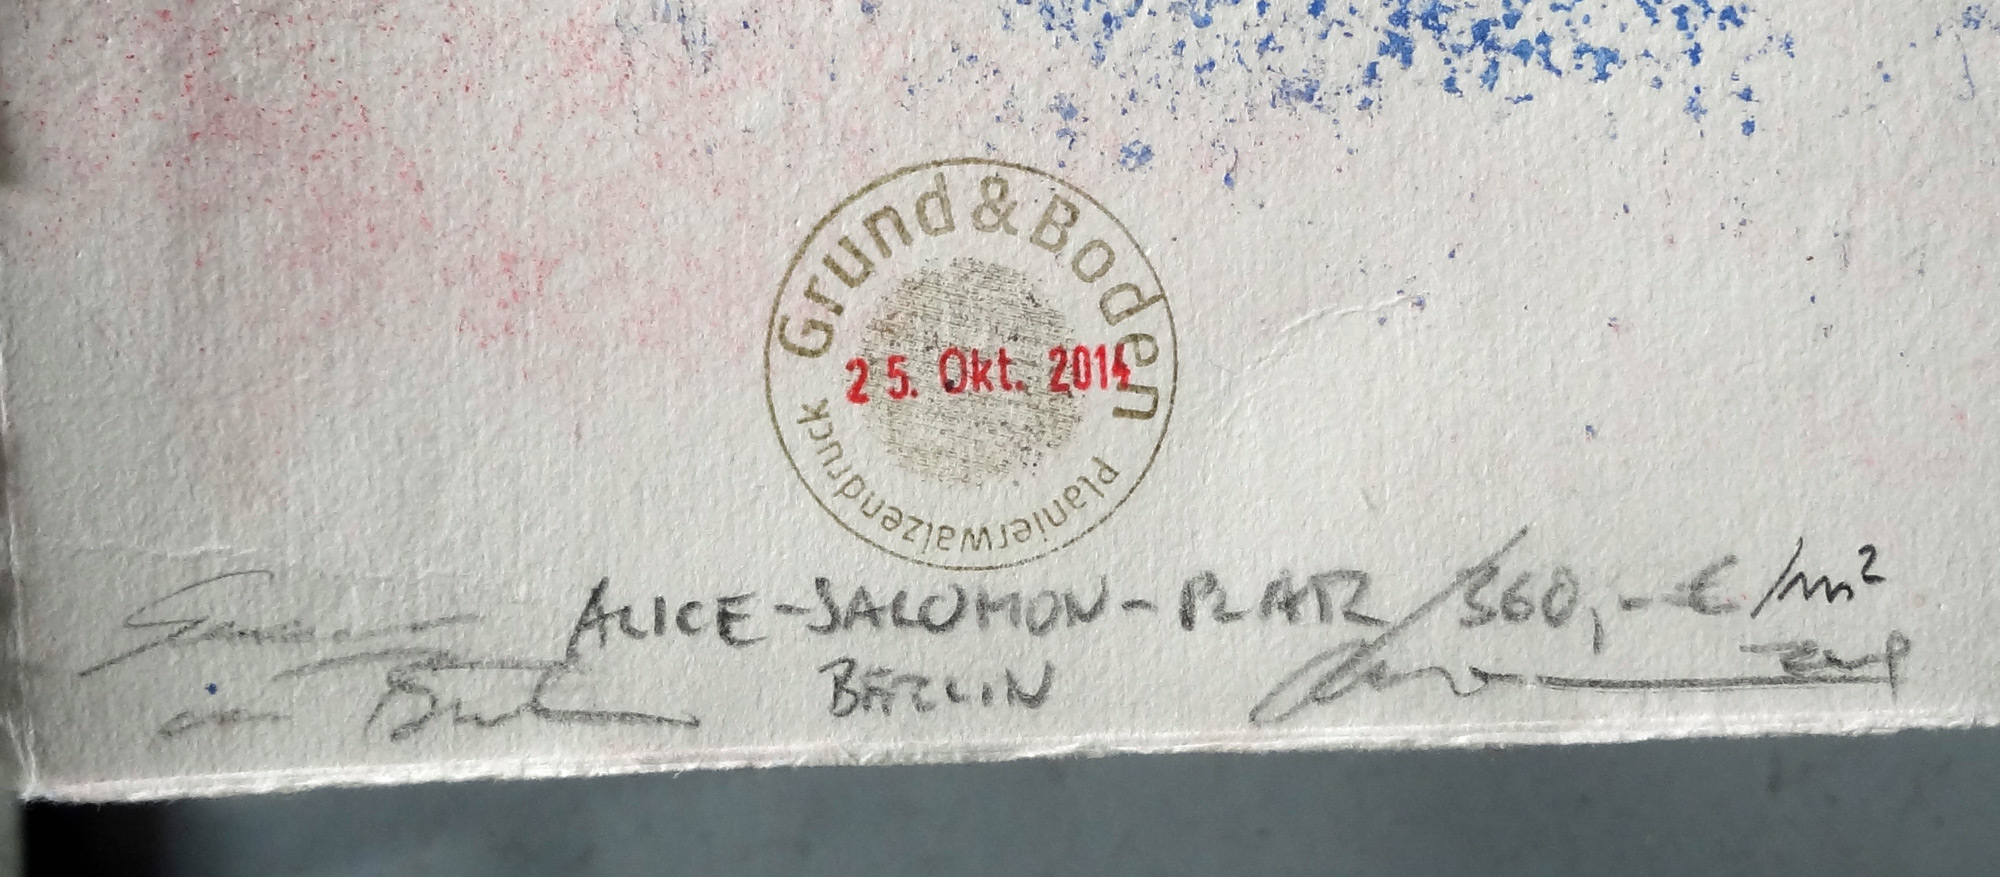 Grund & Boden
25. Okt. 2014
Planierwalzendruck
ALICE-SALOMON-PLATZ / 360,- € /m²
BERLIN